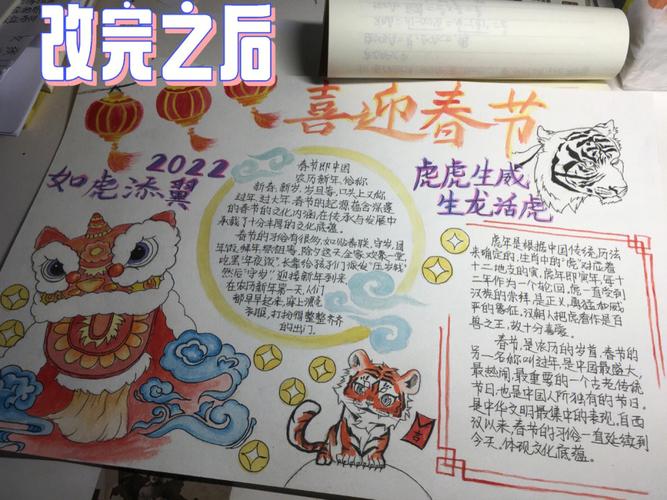 改完之后
喜迎春节
2022
如虎添翼
虎虎生威
生龙活虎
春节即中国
农历新年,俗称
新春、新岁、岁旦等,口头上又称
过年、过大年。春节的起源蕴含深邃
的春节的文化内涵,在传承与发展中
承载了十分丰厚的文化底蕴。
春节的习俗有很多,如贴春联,守岁,团
年饭,拜年,祭祖等,除夕这天,全家欢聚一堂,
吃罢“年夜饭”,长辈给孩子们派发“压岁钱”
然后“守岁”迎接新年到来
在农历新年第一天,人们
都早早起来,穿上漂亮
衣服,打扮得整整齐齐
的出门。
虎年是根据中国传统历法
来确定的,生肖中的“虎”对应着
十二地支的寅,虎年即寅年,每十
二年作为一个轮回,虎一直受到
汉族的崇拜,是正义,勇猛和威
严的象征,汉朝人把虎看作是百
兽之王,故十分喜爱。
春节,是农历的岁首,春节的
另一名称叫过年,是中国最盛大,
最热闹,最重要的一个古老传统
节日,也是中国人所独有的节日,
是中华文明最集中的表现,自西
汉以来,春节的习俗一直延续到
今天,体现文化底蕴。